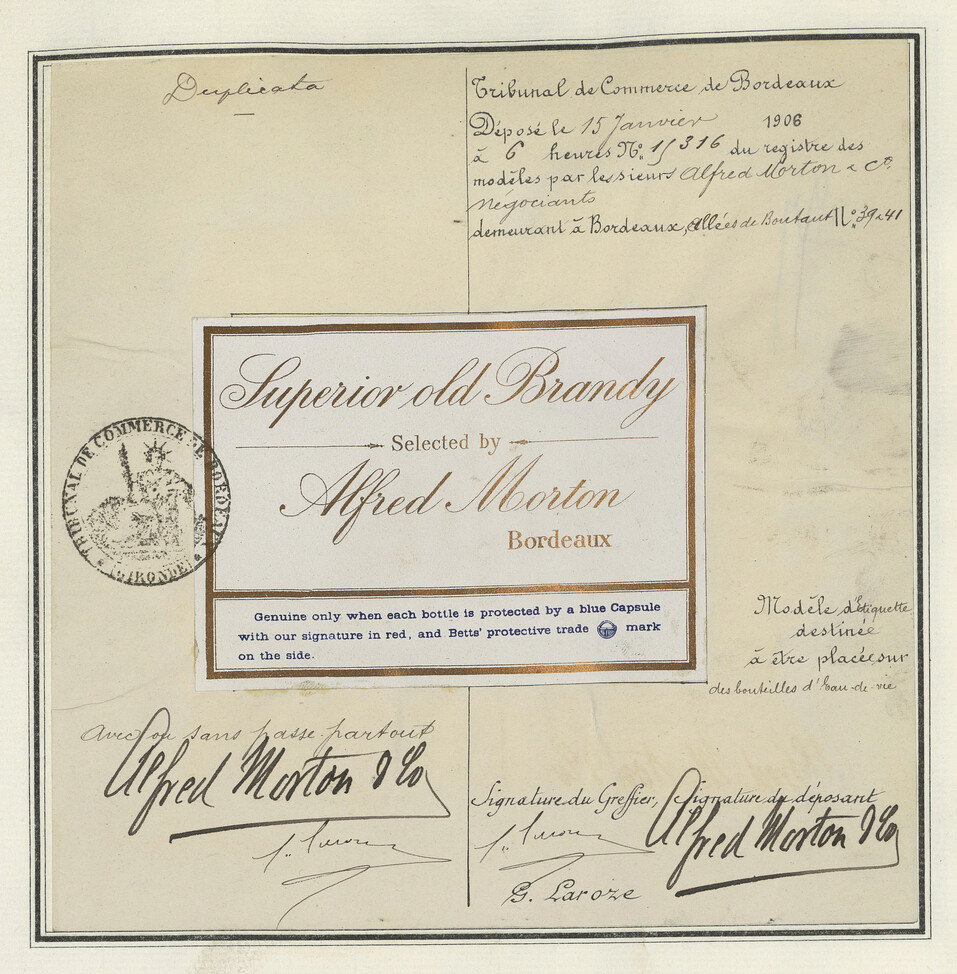 Duplicata
Tribunal de Commerce de Bordeaux
Déposé le 15 Janvier 1906
à 6 heures No. 15316 du registre des
modèles par les sieurs Alfred Morton & Co.
négociants
demeurant à Bordeaux, Allées de Boutaut No. 39 & 41
Superior old Brandy
Selected by
Alfred Morton
Bordeaux
Genuine only when each bottle is protected by a blue Capsule
with our signature in red, and Betts' protective trade mark
on the side.
TRIBUNAL DE COMMERCE DE BORDEAUX
(GIRONDE)
Modèle d'Etiquette
destinée
à être placée sur
des bouteilles d'Eau-de-vie
avec ou sans passe-partout
Alfred Morton & Co
Signature du Greffier, Signature du déposant
Alfred Morton & Co
G. Laroze